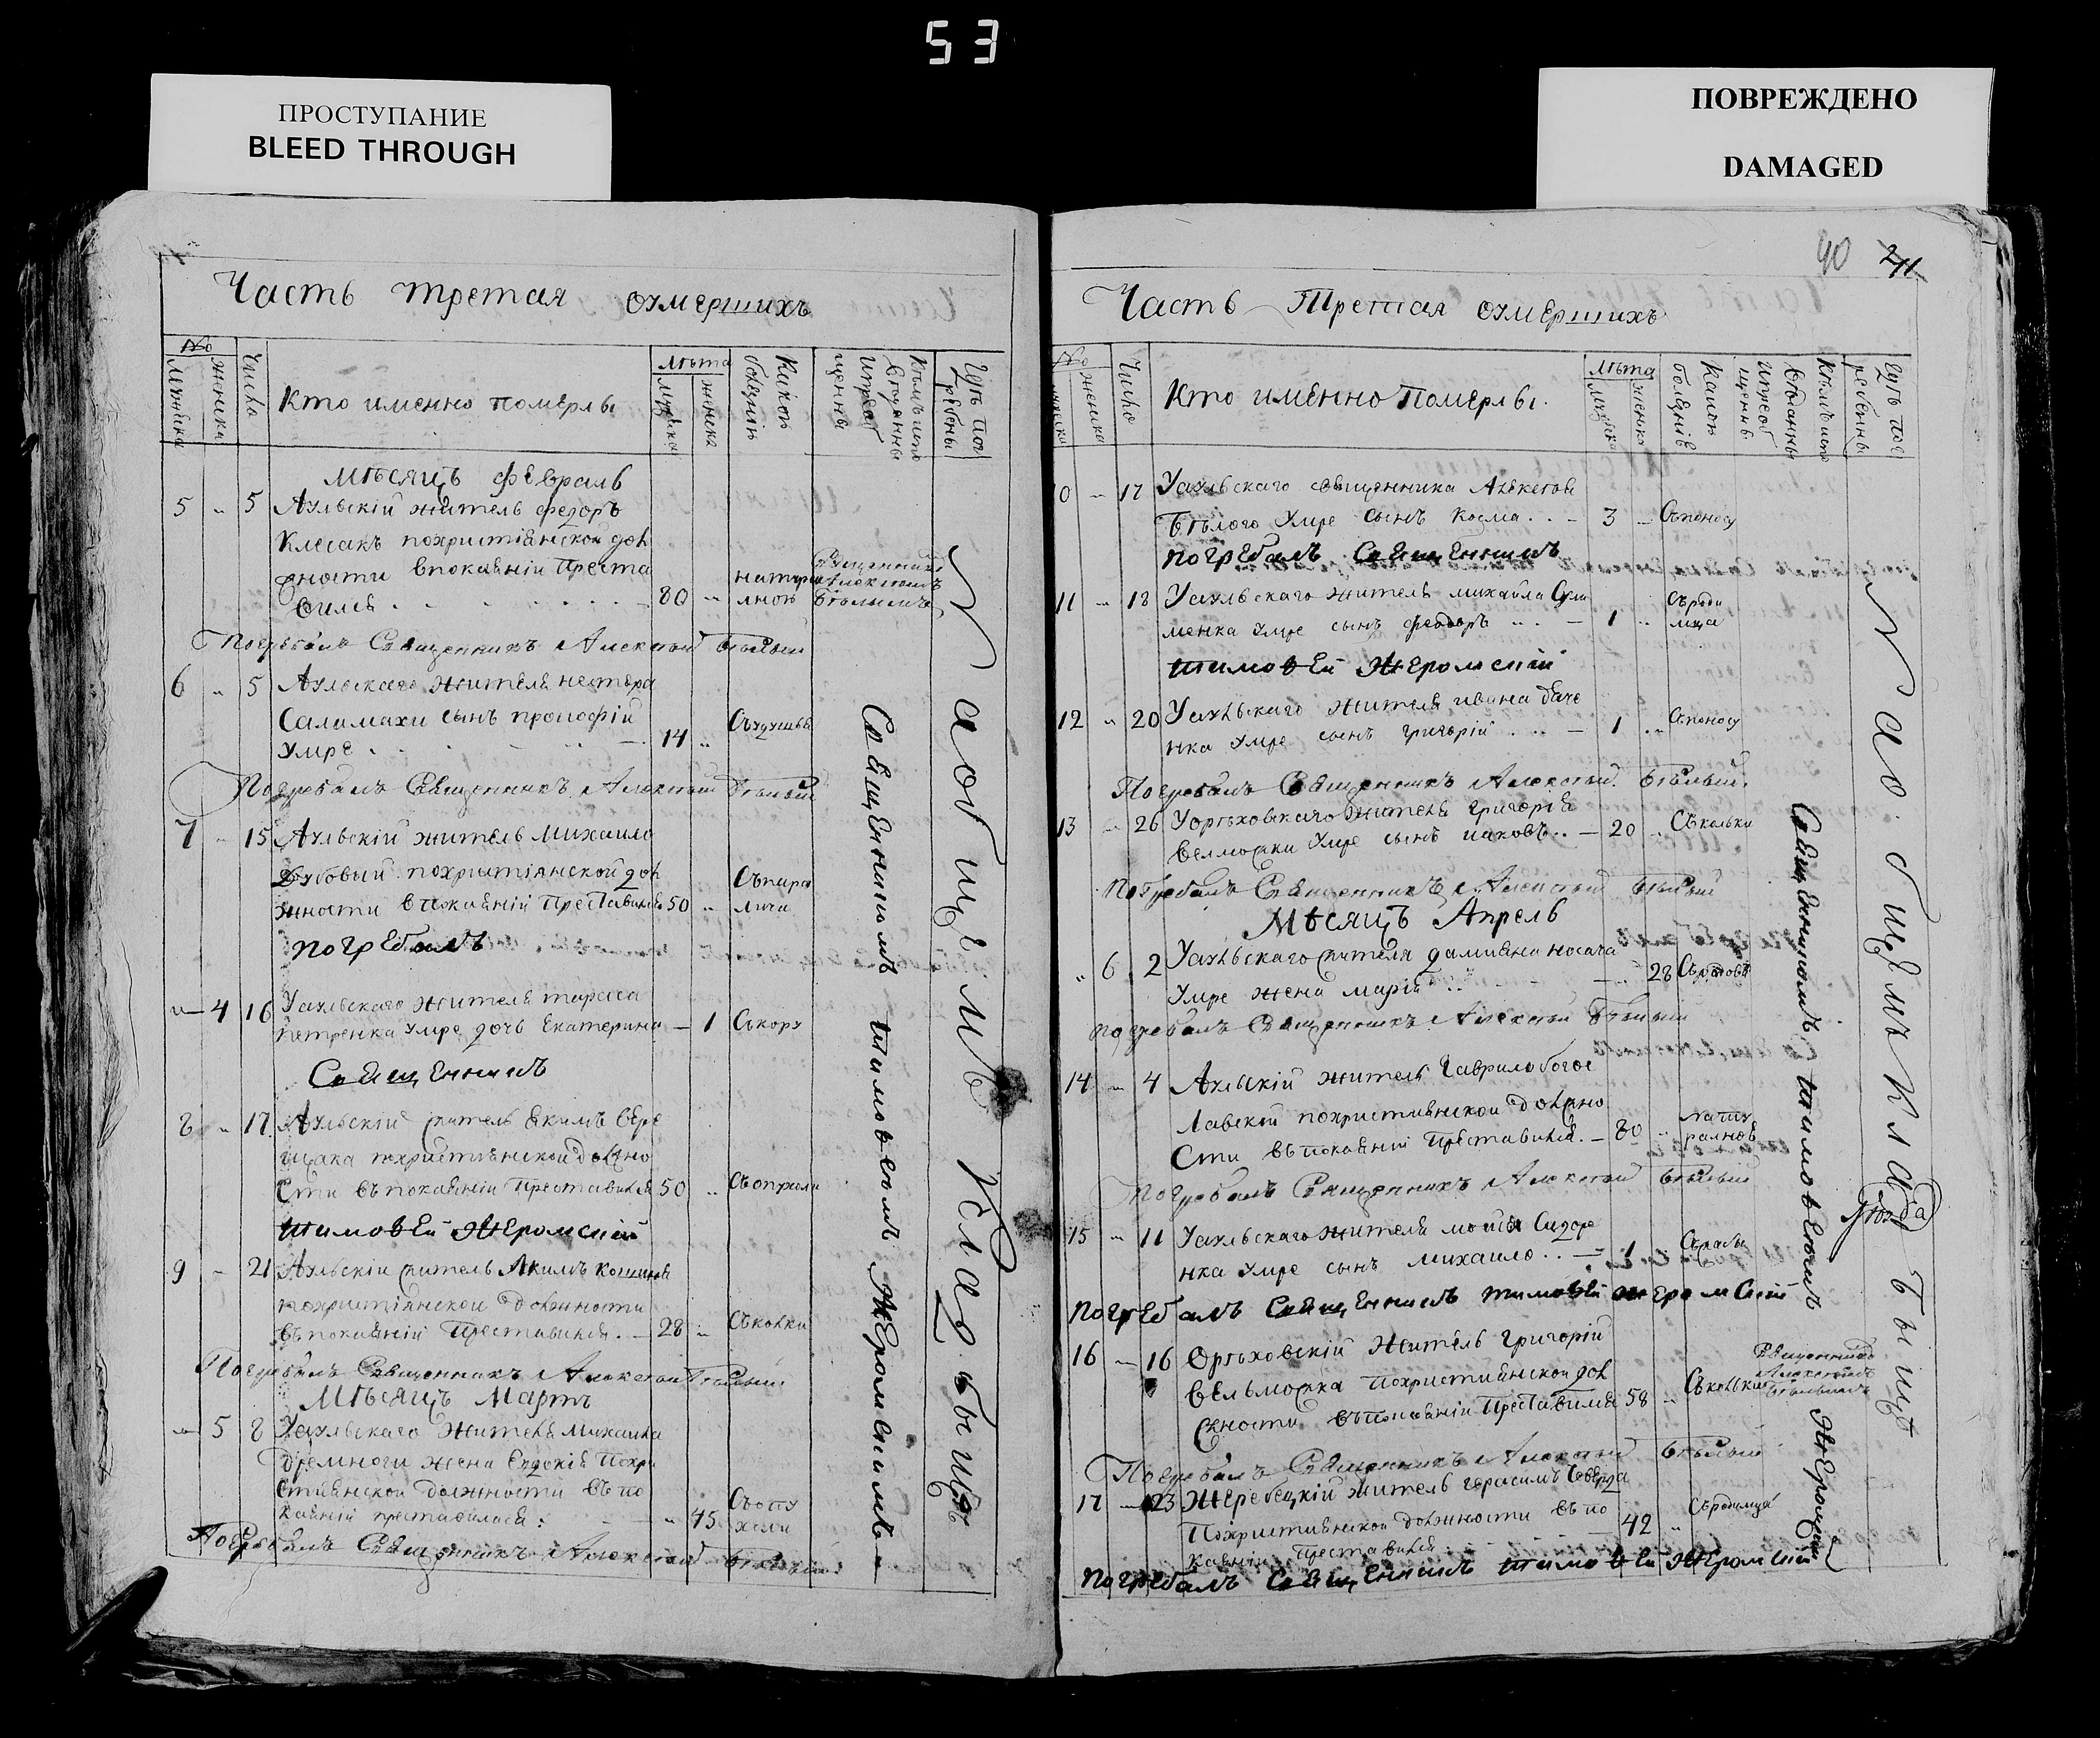 53
ПРОСТУПАНИЕ
BLEED THROUGH
ПОВРЕЖДЕНО
DAMAGED
Часть третая оумершихъ
№
Числа
Кто именно померлы
Лѣта
мѣсяцъ февраль
5 " 5 Аульскій житель федоръ
Клесакъ похристіянской дол
жности впокаяніи Преста
вился 80 "
Священником Алексѣемъ Бѣлымъ
Погребалъ Священникъ Алексѣй Бѣлый
6 " 5 Аульскаго жителя нестера
Саламахи сынъ прокофій
Умре 14 "
Погребалъ Священникъ Алексѣй Бѣлый
7 " 15 Аульскій житель Михаило
Дубовый похристіянской дол
жности впокаяніи Преставился 50 "
погребалъ
" 4 16 Уаульскаго жителя тараса
петренка умре дочь Екатерина — 1 Скору
Священникъ
8 " 17 Аульскій житель Екимъ Вере
щака похристіянской должно
сти въ покаяніи Преставился 50 "
тимовей Жеромскій
9 " 21 Аульскій житель Якимъ
похристіянской должности
въ покаяніи Преставился 28 " Съколки
Погребалъ Священникъ Алексѣй Бѣлый
Мѣсяцъ Мартъ
" 5 8 Уаульскаго жителя Михаила
Дремлюги жена Евдокія Похри
стиянской должности въ по
каяніи преставилася " 45 Съопу холи
Погребалъ Священникъ Алексѣй Бѣлый
Священникомъ тимовеемъ Жеромскимъ
На общемъ кладбищѣ
40
Часть Третая оумершихъ
№
Число
Кто именно Померлы.
Лѣта
10 " 17 Уаульскаго священника Алексѣя
Бѣлого Умре сынъ Косма 3 Спаносу
погребалъ Священникъ
11 " 18 Уаульскаго жителя михаила
менка умре сынъ феодоръ 1 " Съроди мца
тимовей Жеромскій
12 " 20 Уаульскаго жителя ивана
нка умре сынъ григорій 1 " Спаносу
Погребалъ Священникъ Алексѣй Бѣлый
13 " 26 Уорѣховскаго жителя григорія
Велможки Умре сынъ иаковъ 20 " Съколки
Погребалъ Священникъ Алексѣй Бѣлый
Мѣсяцъ Апрель
" 6 2 Уаульскаго жителя дамияна носача
Умре жена марія " 28
погребалъ Священникъ Алексѣй Бѣлый
14 " 4 Аульскій житель Гаврило богос
лавской похристиянской должно
сти въ покаяніи Преставился 80 " Нату ралнов
Погребалъ Священникъ Алексѣй Бѣлый
15 " 11 Уаульскаго жителя Сидоре
нка умре сынъ михаило 1
погребалъ Священникъ тимовей жеромскій
16 " 16 Орѣховскій житель григорій
Вельможка похристиянской дол
жности въ покаяніи Преставился 58 " Съколки
Священникомъ Алексѣемъ Бѣлымъ
Погребалъ Священникъ Алексѣй Бѣлый
17 " 23 Жеребецкій житель герасимъ
Похристиянской должности въ по
каяніи преставился 42 " Съродимца
погребалъ Священникъ тимовей Жеромскій
Священникомъ тимовеемъ Жеромскимъ
На общемъ кладбищѣ